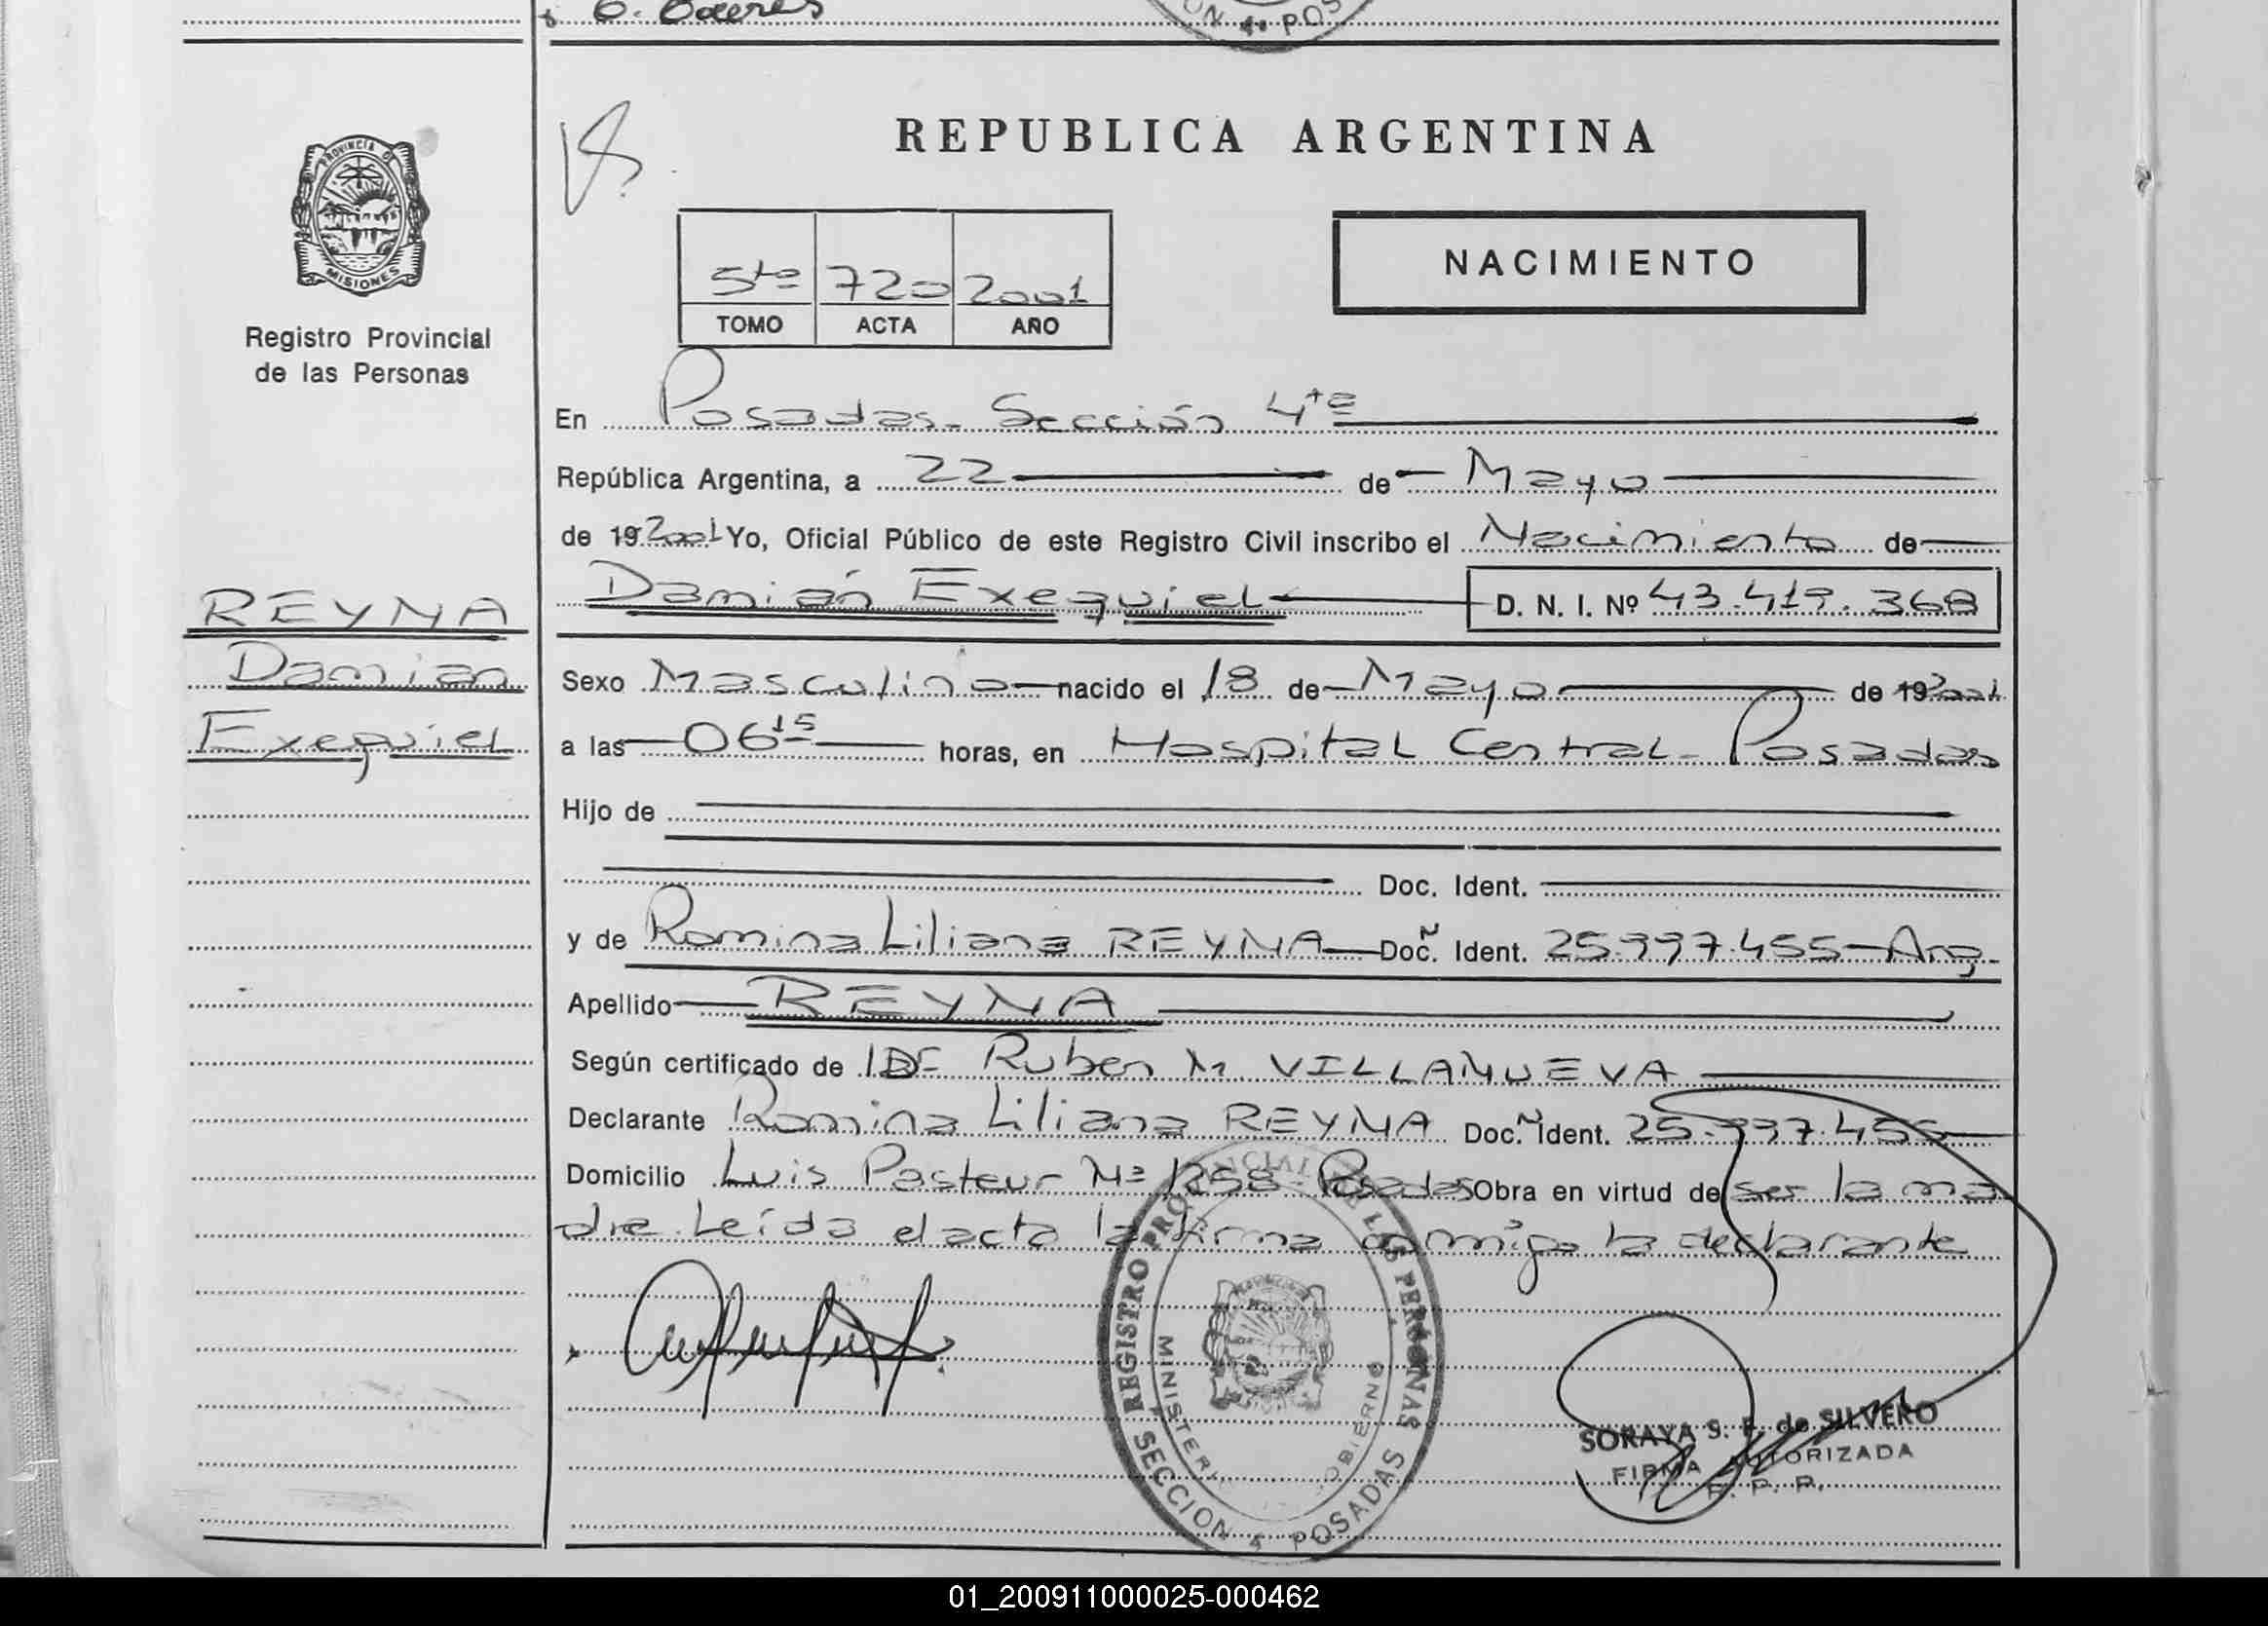 REPUBLICA ARGENTINA
PROVINCIA D
MISIONES
Registro Provincial
de las Personas
NACIMIENTO
5to 720 2001
TOMO ACTA AÑO
En Posadas - Sección 4ta
República Argentina, a 22 de Mayo
de 19 2001 Yo, Oficial Público de este Registro Civil inscribo el Nacimiento de
Damián Exequiel D. N. I. Nº 43.419.368
REYNA
Damián
Exequiel
Sexo Masculino nacido el 18 de Mayo de 19 2001
a las 06 15 horas, en Hospital Central - Posadas
Hijo de
Doc. Ident.
y de Romina Liliana REYNA Doc. Ident. 25.997.455 - Arg.
Apellido REYNA
Según certificado de Dr Ruben M. VILLANUEVA
Declarante Romina Liliana REYNA Doc. Ident. 25.997.455
Domicilio Luis Pasteur Nº 1258 - Posadas Obra en virtud de ser la ma
dre. Leída el acta la firma conmigo la declarante
REGISTRO PROVINCIAL DE LAS PERSONAS
MINISTERI OBIERNO
SECCION 4 POSADAS
SORAYA S. F. de SILVERO
FIRMA AUTORIZADA
R. P. P.
01_200911000025-000462